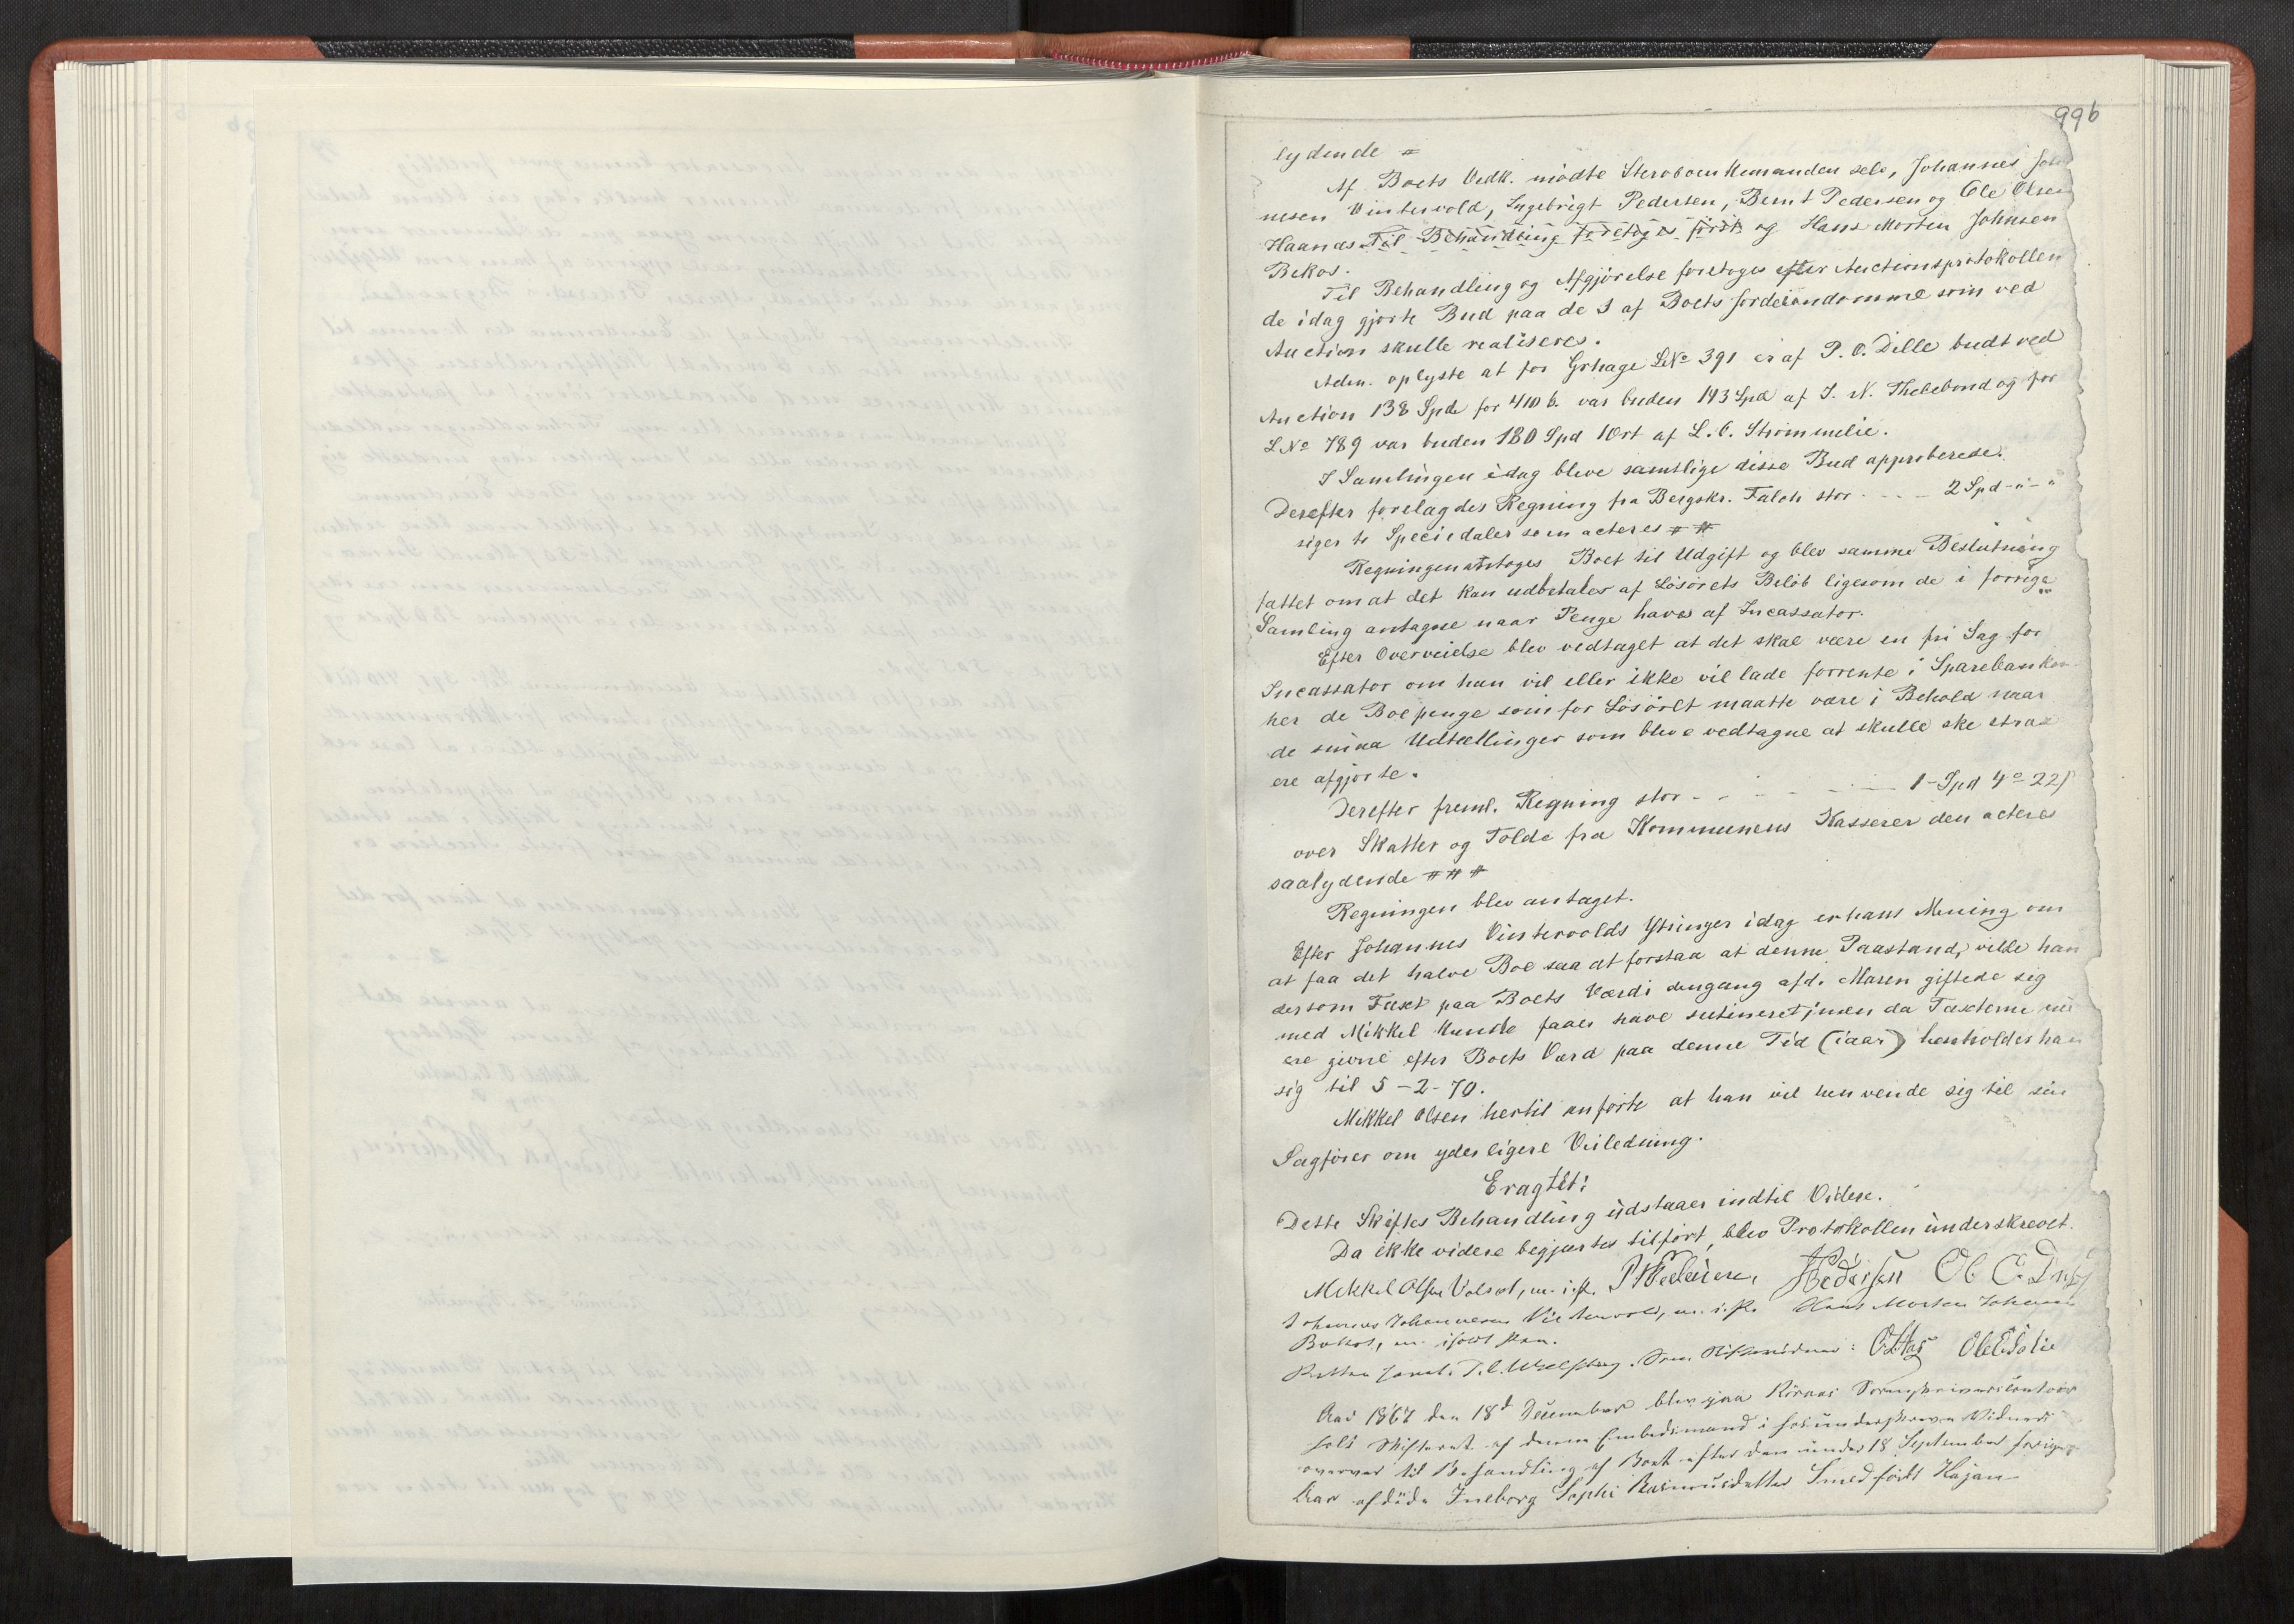 99b
lydende #
Af Boets Vedk. mødte Sterboenkemanden selv, Johannes Joha
nesen Vintervold, Ingebrigt Pedersen, Bernt Pedersen og Ole Olsen
Haanæs Til Behandling foretoges först og Hans Morten Johnsen
Bekos.
Til Behandling og Afgjørelse foretoges efter Auctionsprotokollen
de idag gjorte Bud paa de 3 af Boets Jordeiendomme som ved
Auction skulle realiseres.
Adm. oplyste at for Grhage LNo 391 er af P. O. Dille budt ved
Auction 138 Spd for 410 b. var buden 143 Spd af J. N. Thelebond og for
LNo 789 var buden 180 Spd 1 Ort af L. C. Strömmelie.
I Samlingen idag bleve samtlige disse Bud approberede.
Derefter forelagdes Regning fra Bergskr. Falch stor - - - 2 Spd - " - "
siger to Speciedaler som acteres # #
Regningen antoges Boet til Udgift og blev samme Beslutning
fattet om at det kan udbetales af Løsørets Beløb ligesom de i forrige
Samling antagne naar Penge haves af Incassator.
Efter Overveielse blev vedtaget at det skal være en fri Sag for
Incassator om han vil eller ikke vil lade forrente i Sparebanken
her de Boe penge som for Løsøret maatte være i Behold naar
de smaa Udtællinger som bleve vedtagne at skulle ske strax
ere afgjorte.
Derefter freml. Regning stor - - - - - 1 - Spd 4 o 22 s
over Skatter og Tolde fra Kommunens Kasserer den acteres
saalydende # # #
Regningen blev antaget.
Efter Johannes Vintervolds Ytringer idag er hans Mening om
at faa det halve Boe saa at forstaa at denne Paastand, vilde han
dersom Taxt paa Boets Værdi dengang afd. Maren giftede sig
med Mikkel kunde faaes have sutineret; men da Taxterne nu
ere givne efter Boets Værd paa denne Tid (iaar) henholdes han
sig til 5 - 2 - 70.
Mikkel Olsen hertil anførte at han vil henvende sig til sin
Sagfører om yderligere Veiledning.
Eragtet:
Dette Skiftes Behandling udstaaer indtil Videre.
Da ikke videre begjærtes tilført, blev Protokollen underskrevet.
Mikkel Olsen Volset, m. i. P. P Pedersen, Pedersen Ol O.
Johannes Johannesen Vintervold, m. i. P. Hans Morten Johnsen
Bekos, m. iholdt Pen.
Retten hævet. Som Skiftevidner:
Aar 1867 den 18d December blev paa Röraas Sorenskrivercontoir
holdt Skifteret af denne Embedsmand i hosunderskrevne Vidners
overvær til Behandling af Boet efter den under 18 September forige
Aar afdöde Ineborg Sophi Rasmusdatter Smed födt Hajan